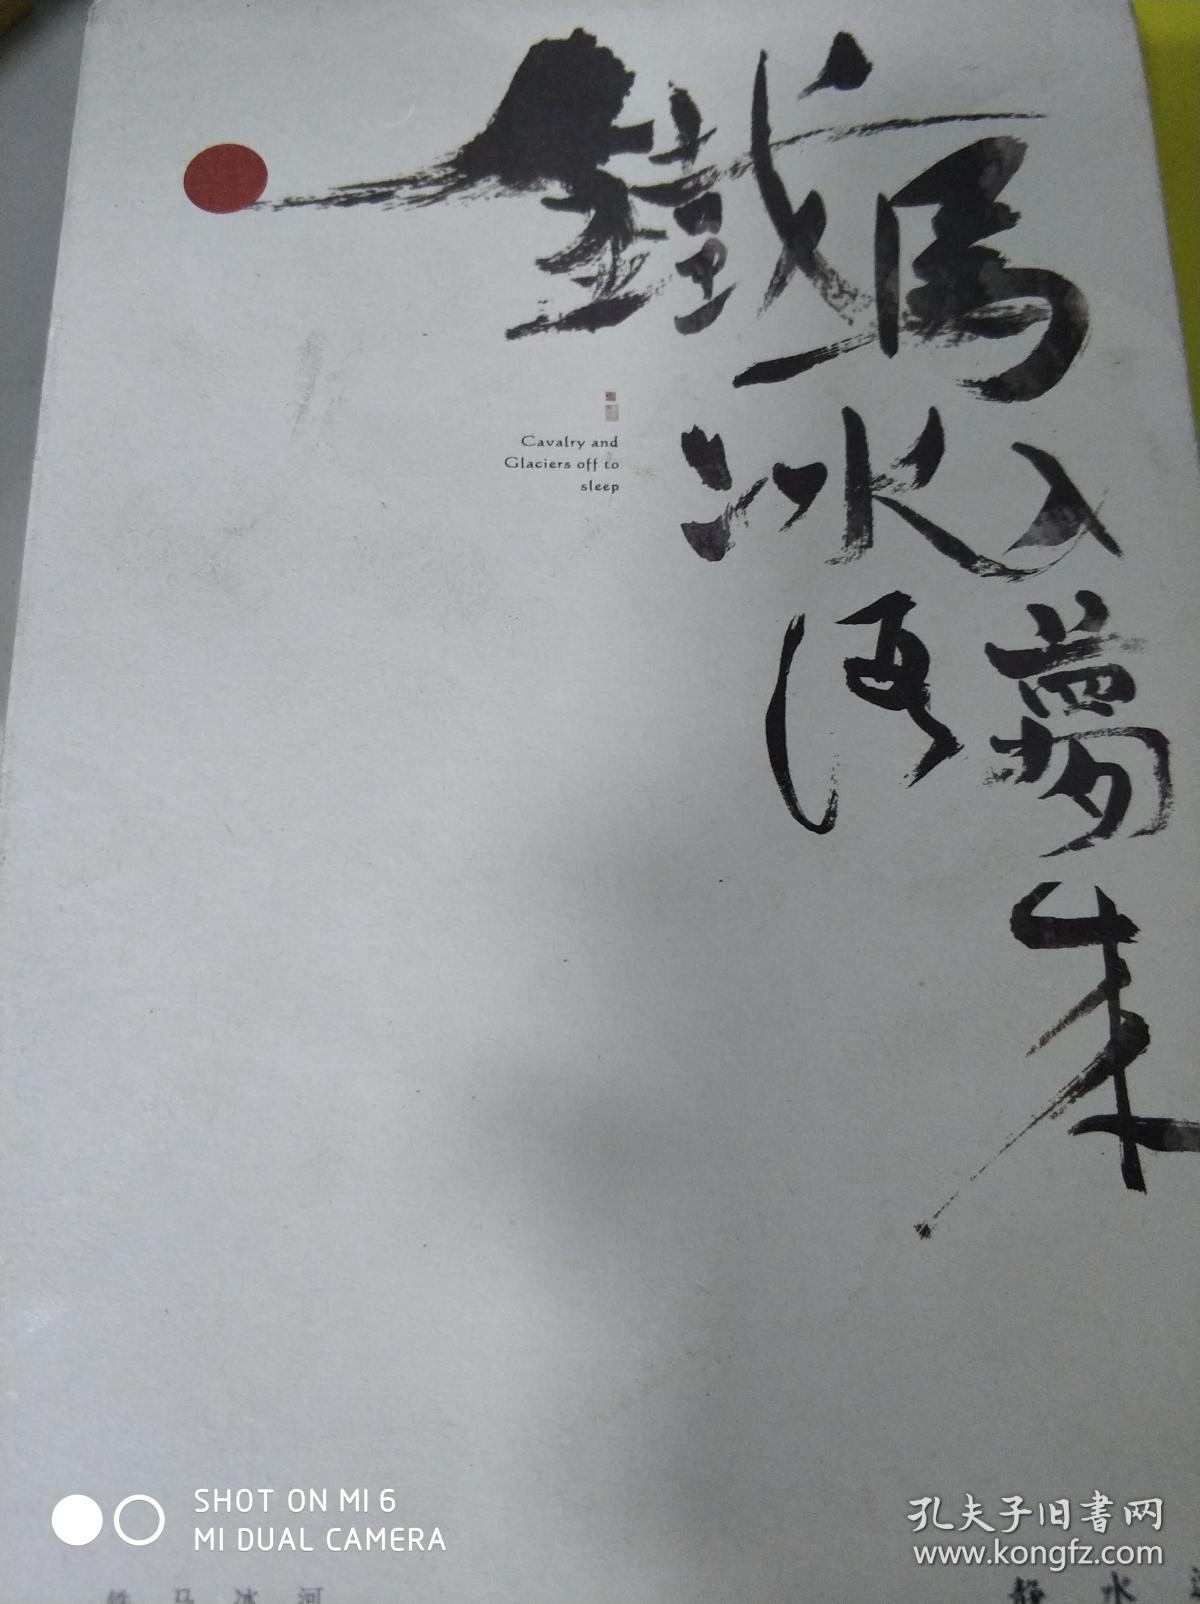 鐵馬
冰河
入夢来
Cavalry and
Glaciers off to
sleep
SHOT ON MI 6
MI DUAL CAMERA
孔夫子旧书网
www.kongfz.com
铁马冰河
静水